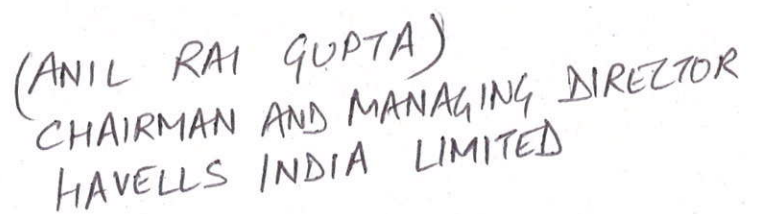 (ANIL RAI GUPTA)
CHAIRMAN AND MANAGING DIRECTOR
HAVELLS INDIA LIMITED